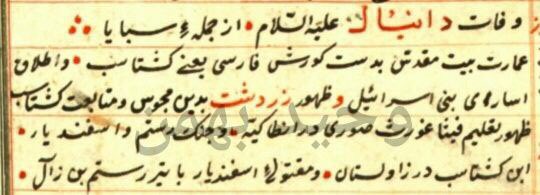 وفات دانیال علیه السّلام از جملهٔ سبایا
عمارت بیت مقدس بدست کورش فارسی یعنے کشتاسب واطلاق
اسارای بنی اسرائیل وظهور زردشت بدین مجوس ومتابعت کشتاسب
ظهور تعلیم فیثاغورث صوری در انطاکیه وجنک رستم واسفندیار
ابن کشتاسب در زاولستان ومقتولی اسفندیار با تیر رستم بن زال
وحید بهمن